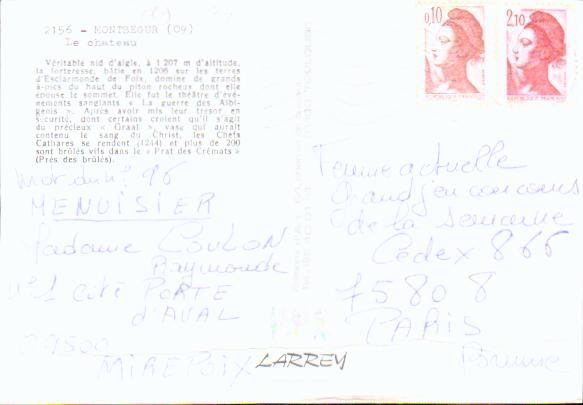 2156 - MONTSEGUR (09)
Le chateau
Véritable nid d'aigle, à 1 207 m d'altitude,
la forteresse, bâtie en 1206 sur les terres
d'Esclarmonde de Foix, domine de grands
à-pics du haut du piton rocheux dont elle
épouse le sommet. Elle fut le théâtre d'évé-
nements sanglants « La guerre des Albi-
geois ». Après avoir mis leur trésor en
sécurité, dont certains croient qu'il s'agit
du précieux « Graal », vase qui aurait
contenu le sang du Christ, les Chefs
Cathares se rendent (1244) et plus de 200
sont brûlés vifs dans le « Prat des Crémats »
(Prés des brûlés).
0,10
2,10
Mot du n° 96
MENUISIER
Madame COULON
Raymonde
n° 1 Cité PORTE
d'AVAL
09500
MIREPOIX
LARREY
Femme actuelle
Grand jeu concours
de la semaine
Cedex 866
75808
PARIS